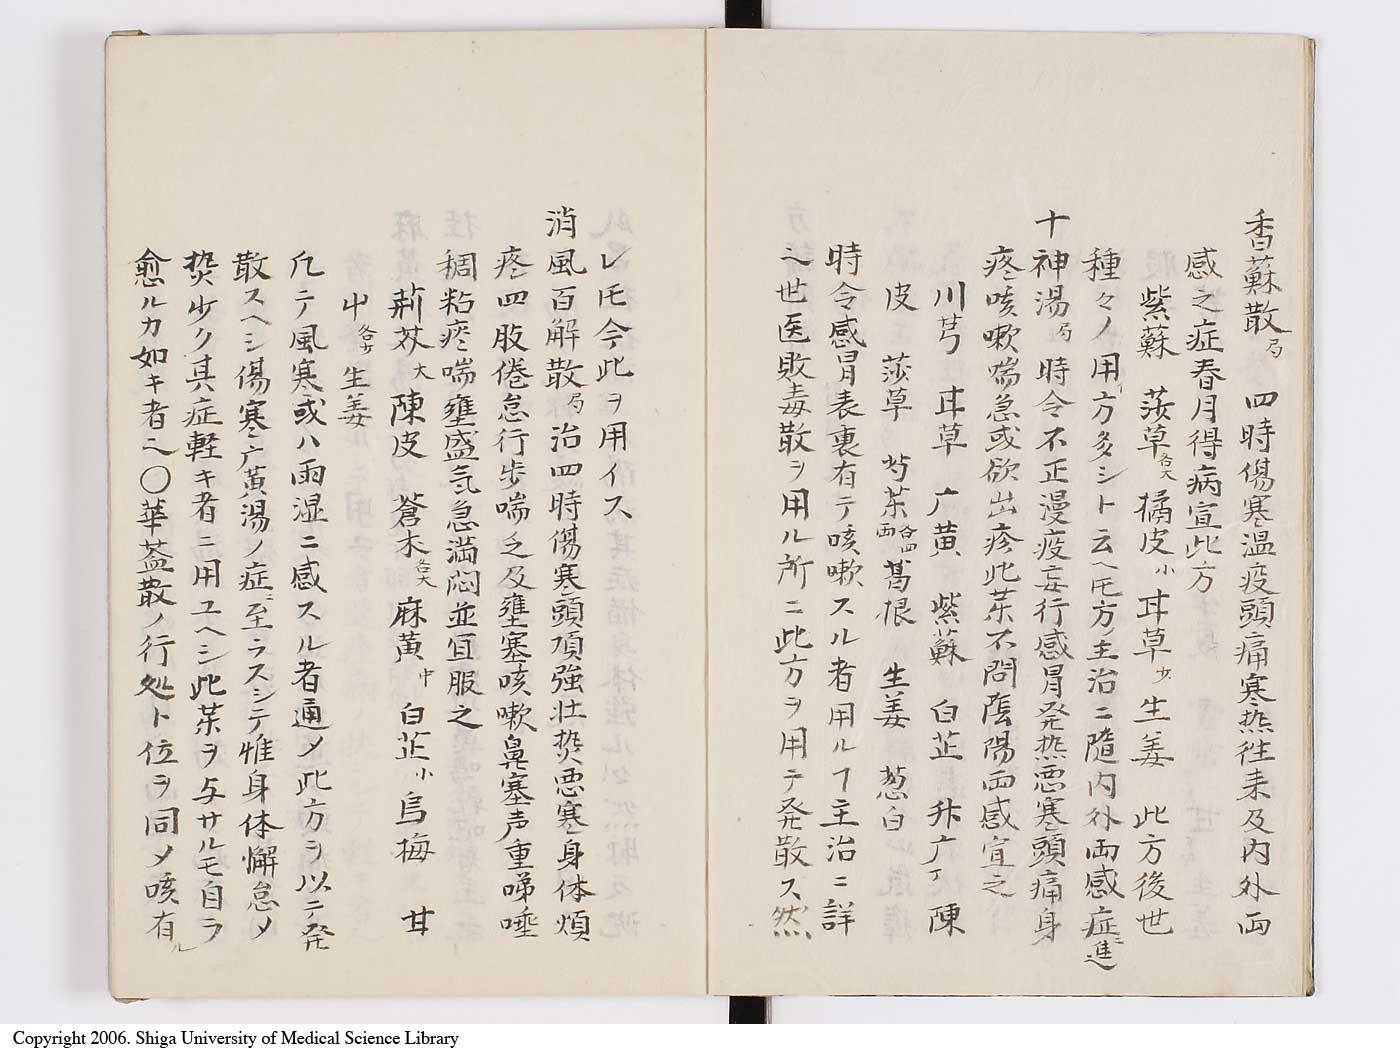 香蘇散局 四時傷寒温疫頭痛寒热往来及内外両
感之症春月得病宜此方
紫蘇 莎草各大 橘皮小 甘草少 生姜 此方後世
種々ノ用イ方多シト云ヘ𪜈方ノ主治ニ隨内外両感症ニ進
十神湯局 時令不正漫疫妄行感冒発热悪寒頭痛身
疼咳嗽喘急或欲出疹此茱不問陰陽両感宜之
川芎 甘草 广黄 紫蘇 白芷 升广丁 陳
皮 莎草 芍茱各四両 葛根 生姜 葱白
時令感冒表裏有テ咳嗽スル者用ルヿ主治ニ詳
也世医敗毒散ヲ用ル所ニ此方ヲ用テ発散ス然
レ𪜈今此ヲ用イス
消風百解散局 治四時傷寒頭項強壮热悪寒身体煩
疼四肢倦怠行歩喘乏及壅塞咳嗽鼻塞声重唾
稠粘痰喘壅盛気急満悶並宜服之
荊芥大 陳皮 蒼朮各大 麻黄中 白芷小 烏梅 甘
屮各少 生姜
凡テ風寒或ハ雨湿ニ感スル者通メ此方ヲ以テ発
散スヘシ傷寒广黄湯ノ症ニ至ラスシテ惟身体懈怠メ
热少ク其症軽キ者ニ用ユヘシ此茱ヲ与サルモ自ラ
愈ルカ如キ者也〇華葢散ノ行処ト位ヲ同メ咳有ル
Copyright 2006. Shiga University of Medical Science Library